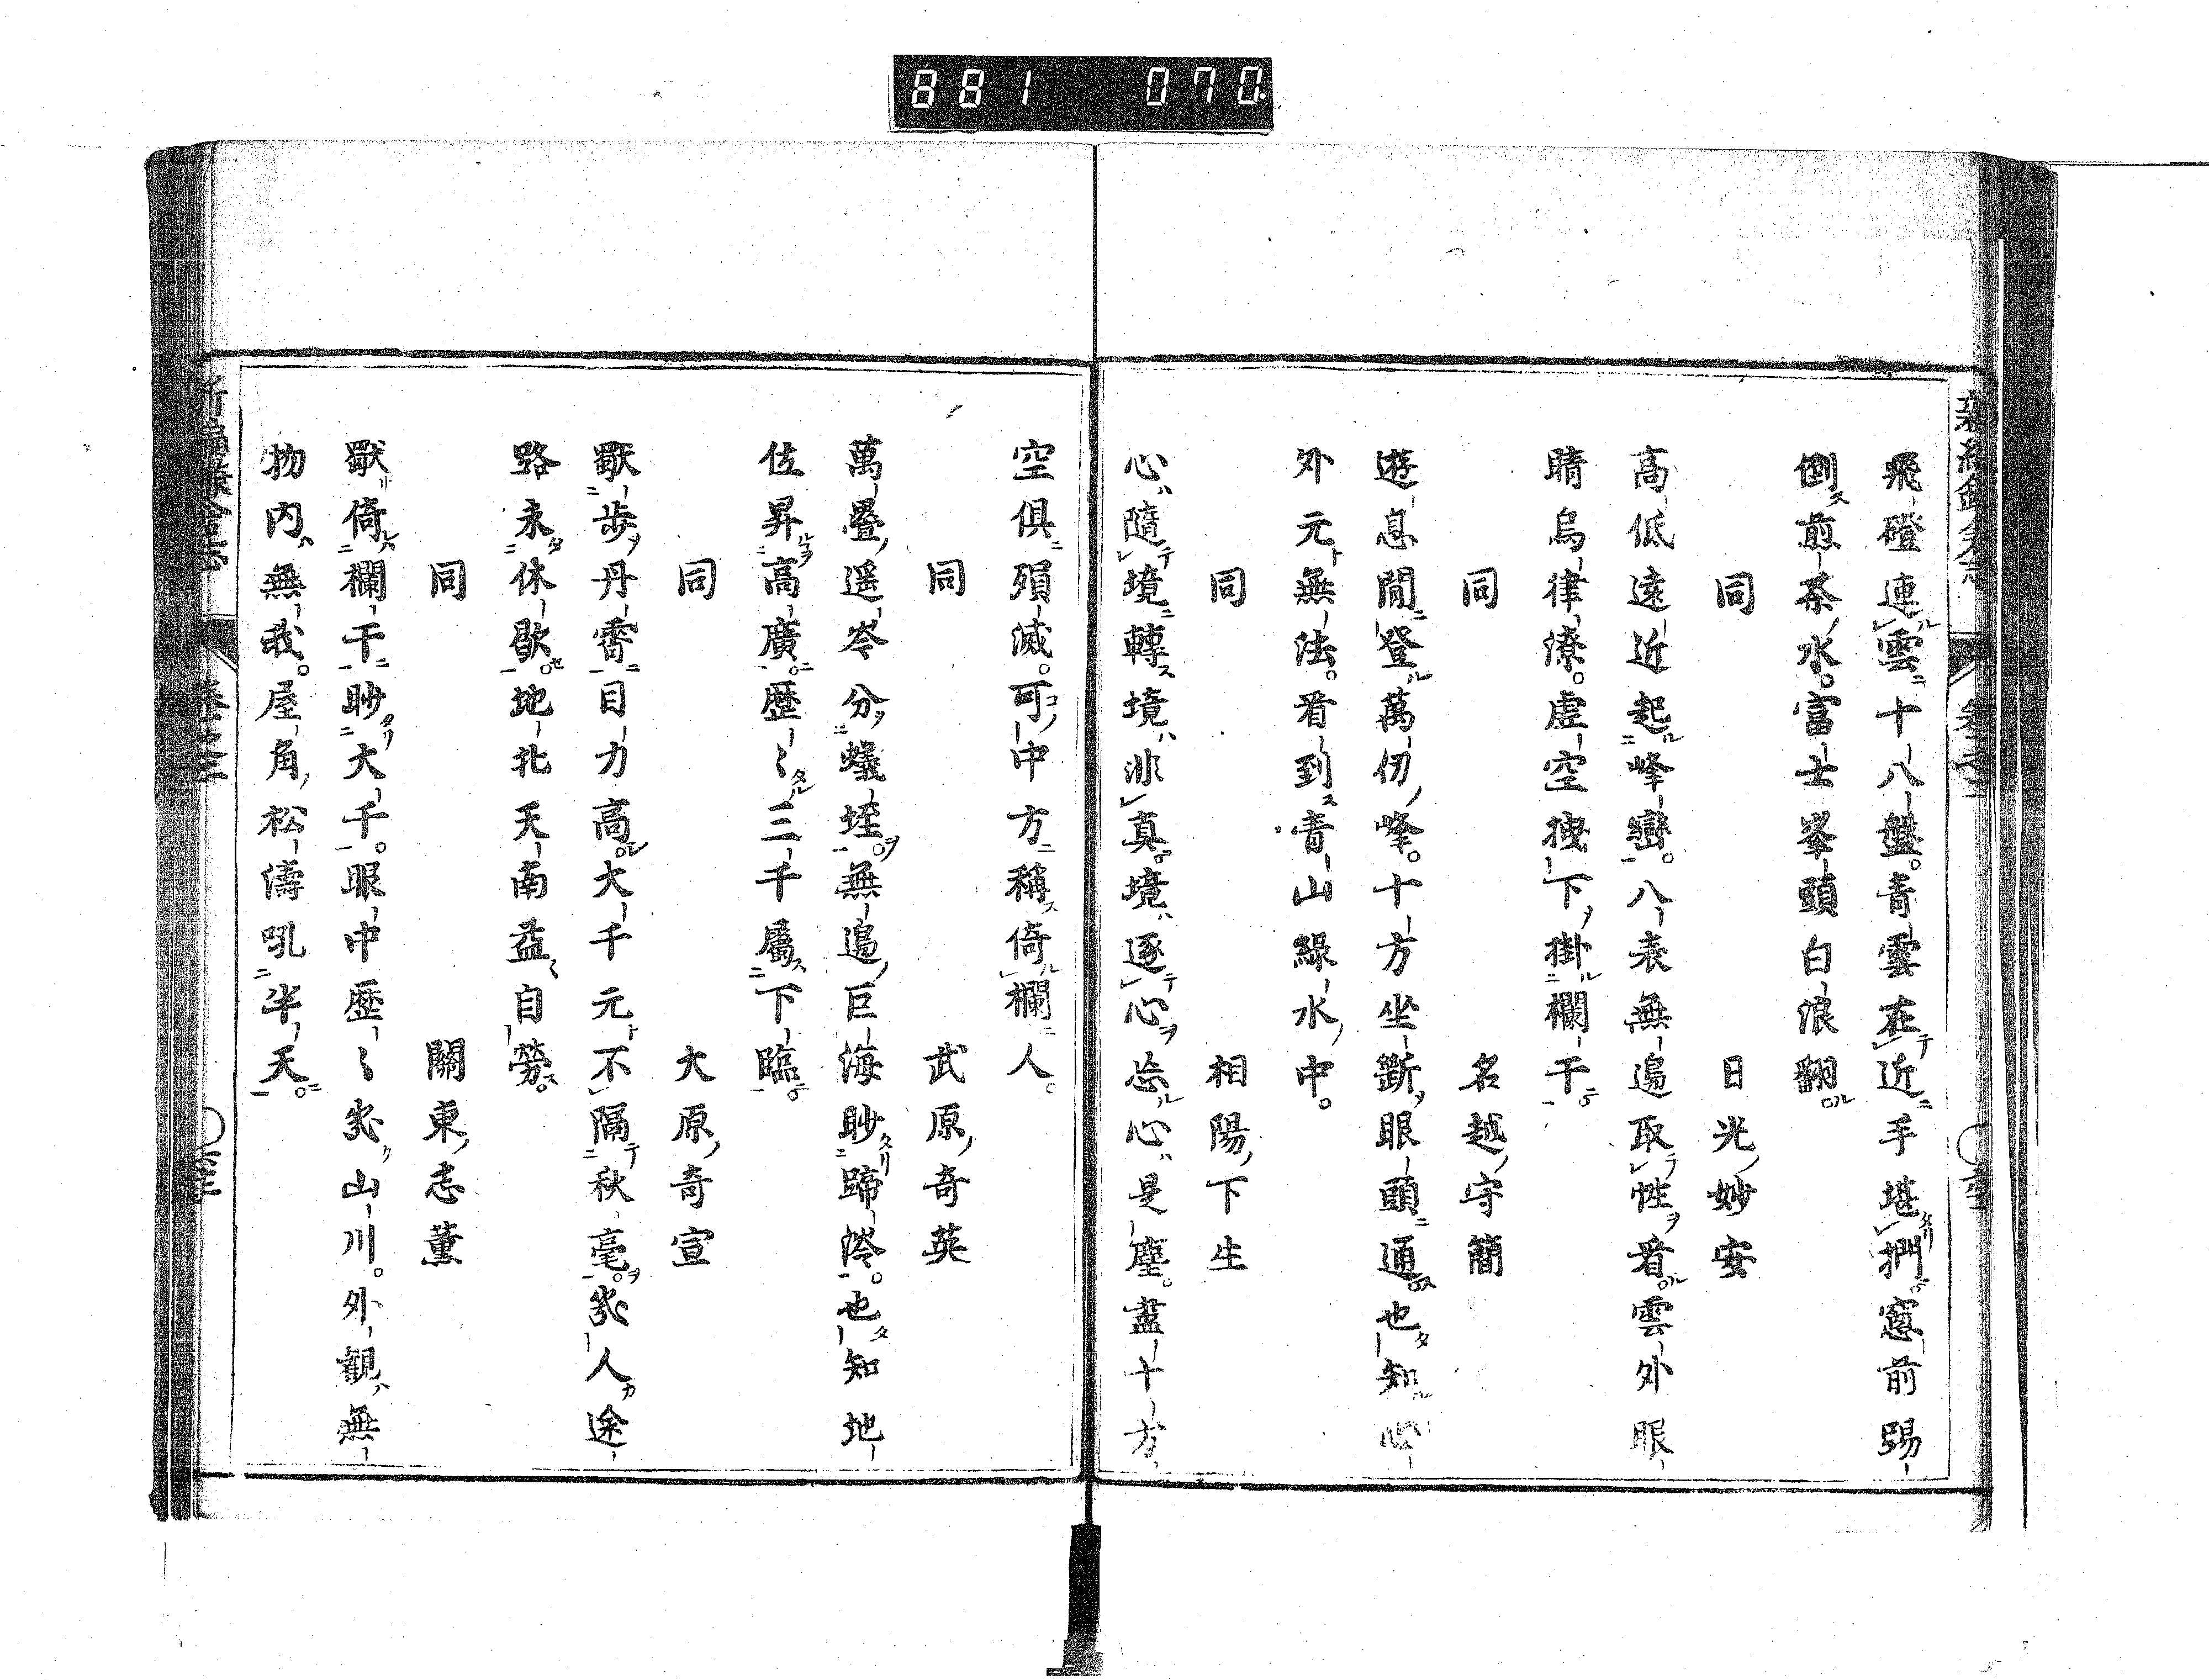 881 070
飛磴連雲十八盤青雲在近手堪捫窓前踢
倒煎茶水富士峯頭白浪翻
同 日光妙安
高低遠近起峰巒八表無邊取性看雲外眼
睛烏律潦虛空拽下掛欄干
同 名越守簡
遊息閒登萬仞峰十方坐斷眼頭通也知心
外元無法看到青山綠水中
同 相陽下生
心隨境轉境非真境逐心忘心是塵盡十方
空俱殞滅可中方稱倚欄人
同 武原奇英
萬疊遥岑分蟻垤無邉巨海眇蹄涔也知地
位昇高廣歴〻三千屬下臨
同 大原奇宣
歇步丹霄目力高大千元不隔秋毫幾人途
路未休歇地北天南益自勞
同 關東志薫
獸倚欄干眇大千眼中歴〻幾山川外觀無
物内無我屋角松濤吼半天